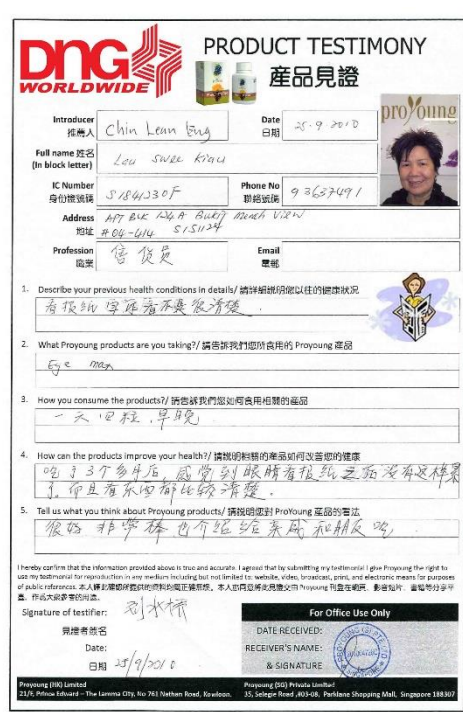 DNG WORLDWIDE
PRODUCT TESTIMONY
產品見證
proYoung
Introducer
推薦人
Chin Lean Eng
Date
日期
25.9.2010
Full name 姓名
(In block letter)
Lou Swee Kiau
IC Number
身份證號碼
S1841230F
Phone No
聯絡號碼
93637491
Address
地址
APT BLK 124A Bukit Merah View
#04-414 S151124
Profession
職業
售货员
Email
電郵
1. Describe your previous health conditions in details/ 請詳細說明您以往的健康狀况
看报纸
2. What Proyoung products are you taking?/ 請告訴我們您所食用的 Proyoung 產品
Eye max
3. How you consume the products?/ 請告訴我們您如何食用相關的產品
一天四粒.早晚
4. How can the products improve your health?/ 請說明相關的產品如何改善您的健康
吃了3个多月后,感觉到眼睛看报纸之后没有这样累
了.而且看东西都比较清楚.
5. Tell us what you think about Proyoung products/ 請說明您對 ProYoung 產品的看法
很好 非常棒 也介绍给亲戚和朋友吃
I hereby confirm that the information provided above is true and accurate. I agreed that by submitting my testimonial I give Proyoung the right to
use my testimonial for reproduction in any medium including but not limited to: website, video, broadcast, print, and electronic means for purposes
of public references. 本人謹此確認所提供的資料均屬正確無誤。本人亦同意將此見證交由 Proyoung 刊登在網頁、影音短片、書籍等分享平
臺、作為大衆參考的用途。
Signature of testifier:
見證者簽名
Date:
日期
25/9/2010
For Office Use Only
DATE RECEIVED:
RECEIVER'S NAME:
& SIGNATURE
Proyoung (HK) Limited
21/F, Prince Edward – The Lamma City, No 761 Nathan Road, Kowloon.
Proyoung (SG) Private Limited
35, Selegie Road ,#03-08, Parklane Shopping Mall, Singapore 188307